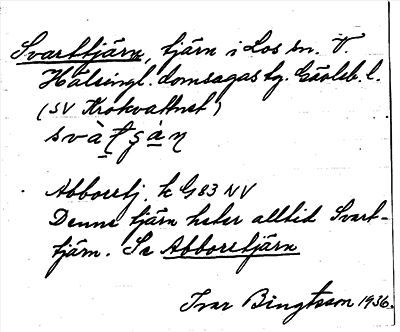 Svarttjärn, tjärn i Los sn. V.
Hälsingl. domsagas tg. Gävleb. l.
(SV Krokvattnet)
svàt̯ṣàṇ
Abborrtj. k G 83 NV
Denna tjärn heter alltid Svart-
tjärn. Se Abborrtjärn
Ivar Bengtsson 1936.